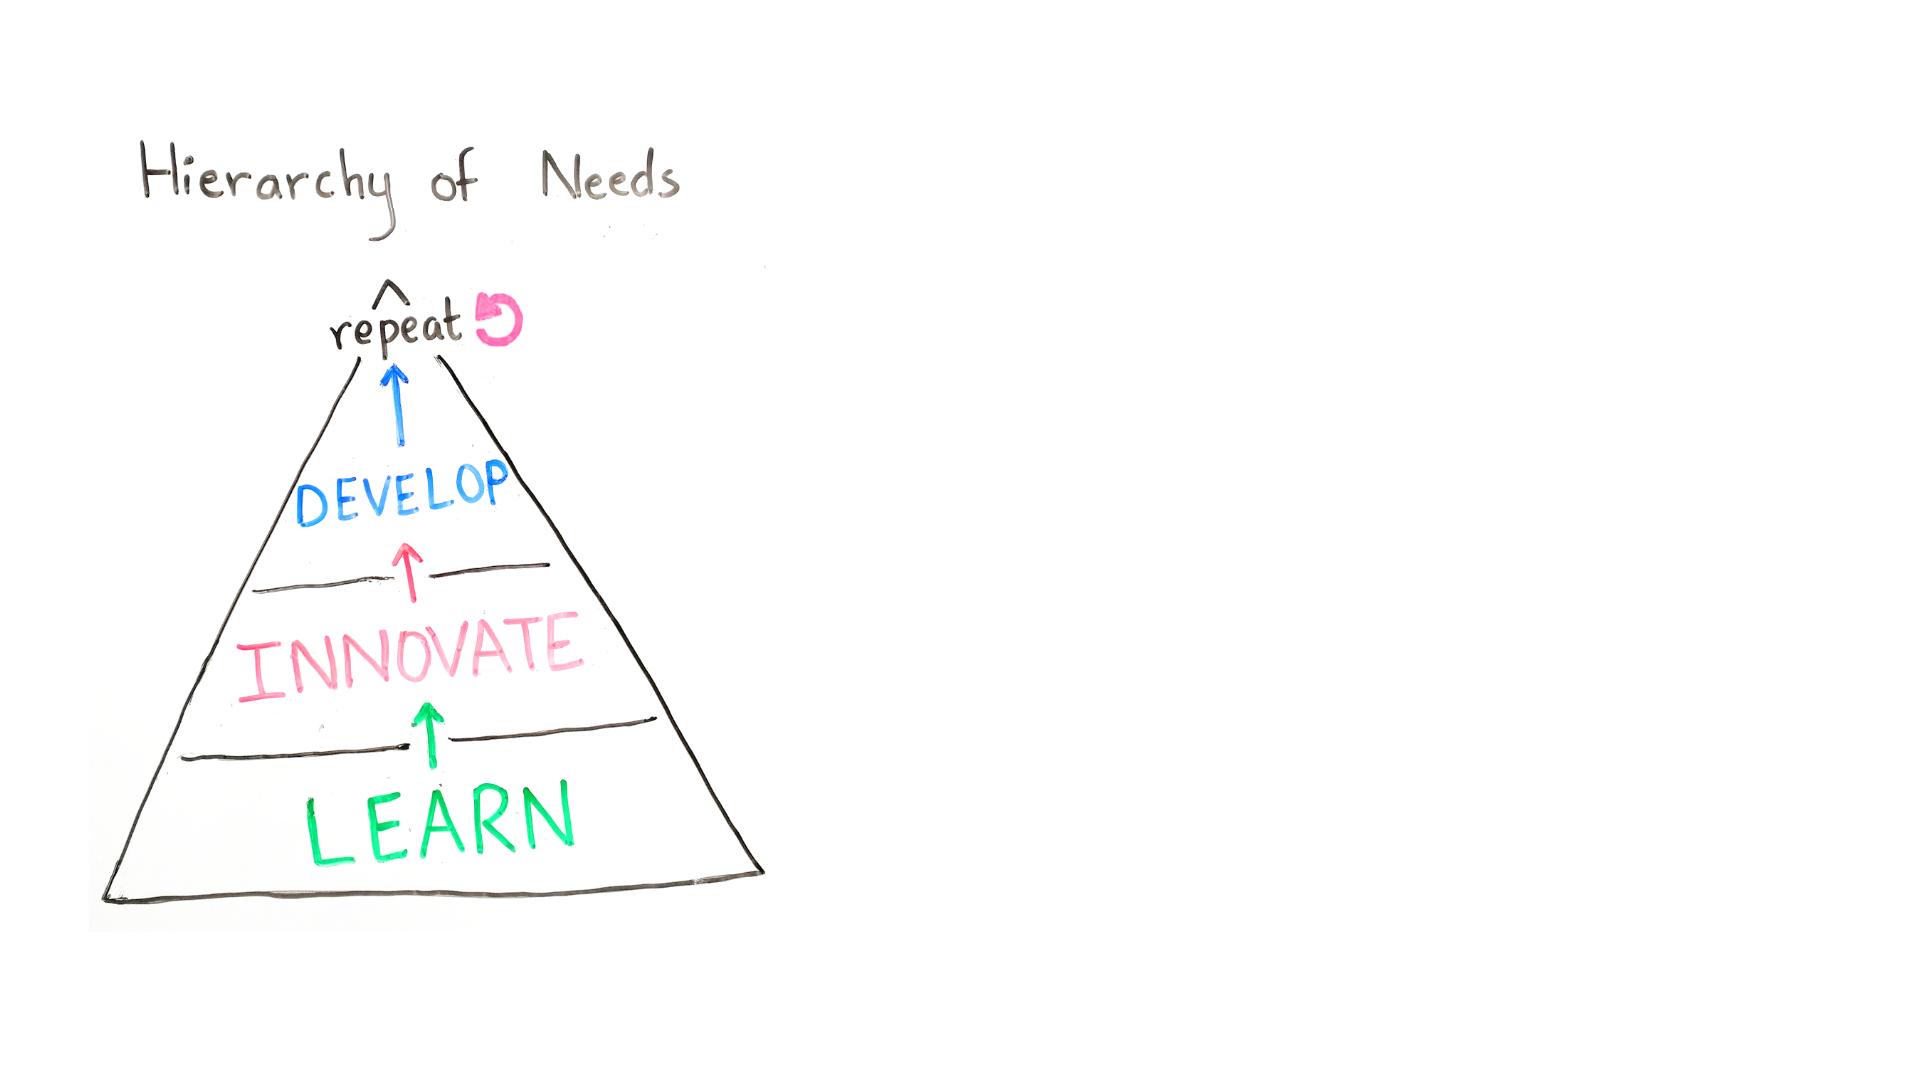 Hierarchy of Needs
repeat
DEVELOP
INNOVATE
LEARN